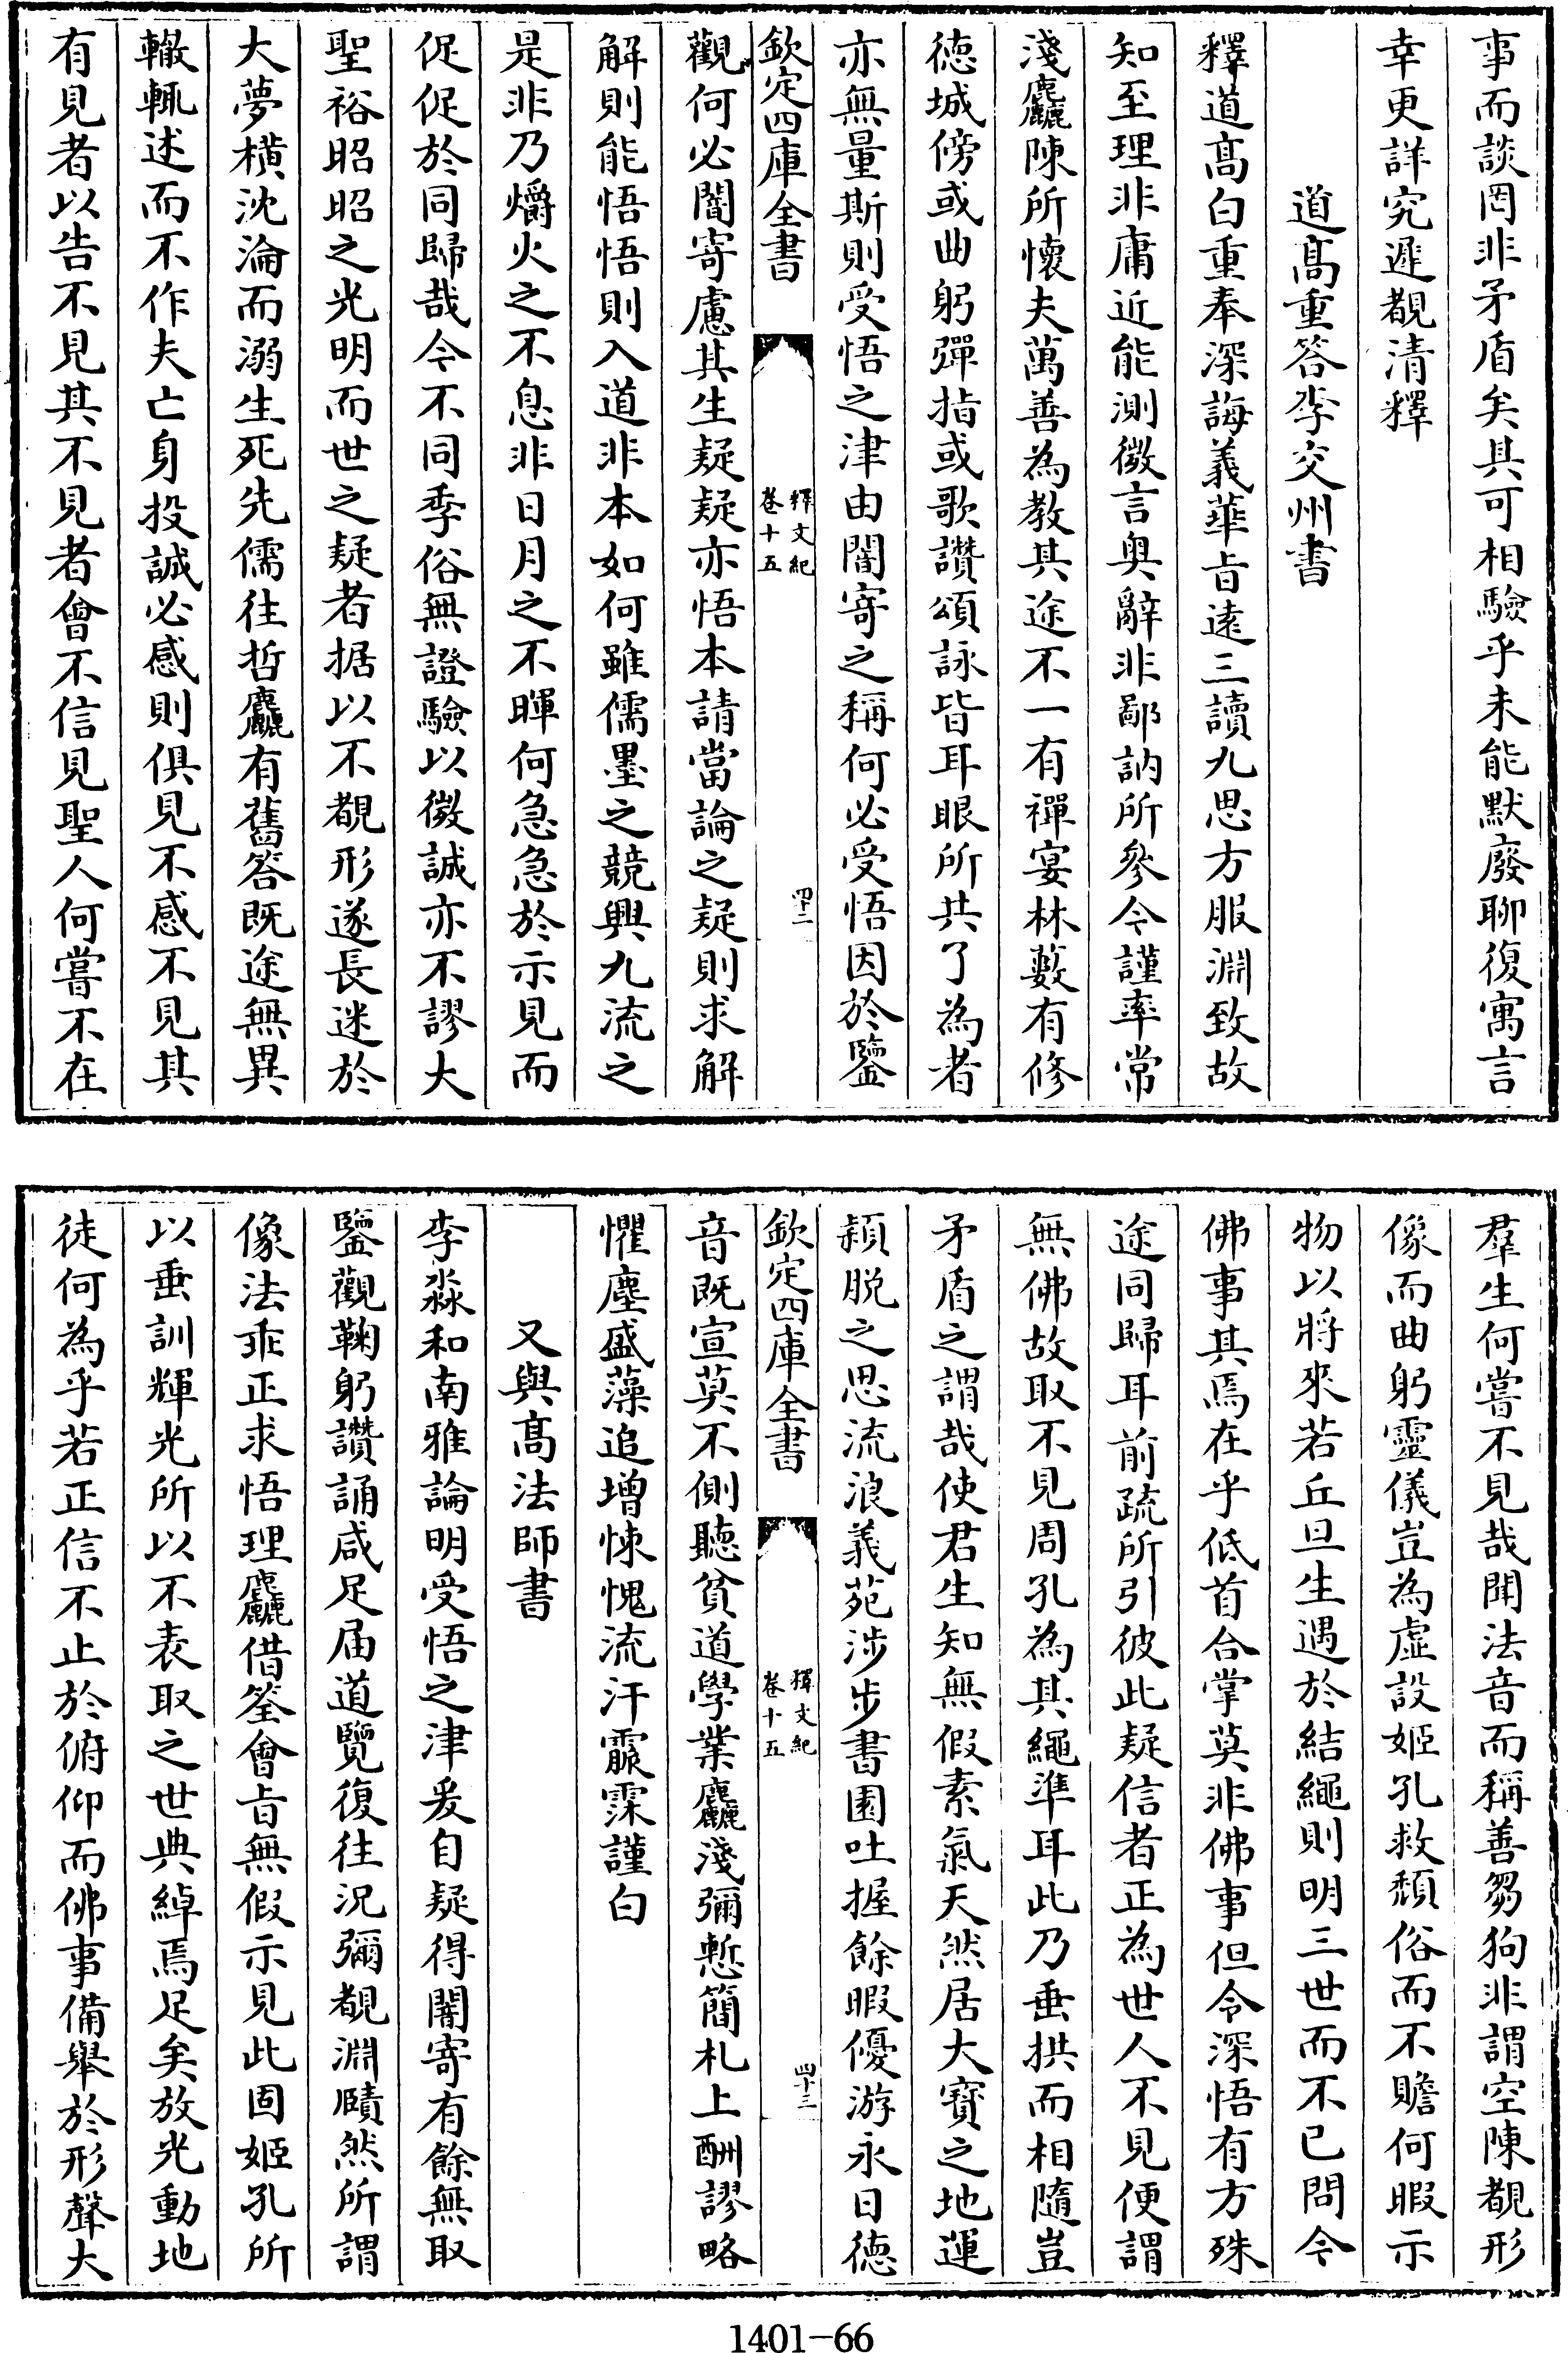 事而談罔非矛盾矣其可相驗乎未能默廢聊復寓言
幸更詳究遲覩清釋
道髙重答李交州書
釋道髙白重奉深誨義華旨遠三讀九思方服淵致故
知至理非庸近能測微言奥辭非鄙訥所參今謹率常
淺麤陳所懷夫萬善為教其途不一有禪宴林藪有修
德城傍或曲躬彈指或歌讚頌詠皆耳眼所共了為者
亦無量斯則受悟之津由闇寄之稱何必受悟因於鑒
欽定四庫全書
釋文紀
卷十五
四十二
觀何必闇寄慮其生疑疑亦悟本請當論之疑則求解
解則能悟悟則入道非本如何雖儒墨之競興九流之
是非乃爝火之不息非日月之不暉何急急於示見而
促促於同歸哉今不同季俗無證驗以徵誠亦不謬大
聖裕昭昭之光明而世之疑者据以不覩形遂長迷於
大夢横沈淪而溺生死先儒往哲麤有舊答既途無異
轍輒述而不作夫亡身投誠必感則俱見不感不見其
有見者以告不見其不見者會不信見聖人何嘗不在
羣生何嘗不見哉聞法音而稱善芻狗非謂空陳覩形
像而曲躬靈儀豈為虚設姬孔救頽俗而不贍何暇示
物以將來若丘旦生遇於結繩則明三世而不已問今
佛事其焉在乎低首合掌莫非佛事但令深悟有方殊
途同歸耳前疏所引彼此疑信者正為世人不見便謂
無佛故取不見周孔為其繩準耳此乃垂拱而相隨豈
矛盾之謂哉使君生知無假素氣天然居大寳之地運
頴脱之思流浪義苑涉步書圃吐握餘暇優游永日德
欽定四庫全書
釋文紀
卷十五
四十三
音既宣莫不側聽貧道學業麤淺彌慙簡札上酬謬略
懼塵盛藻追增悚愧流汗霡霂謹白
又與髙法師書
李淼和南雅論明受悟之津爰自疑得闇寄有餘無取
鑒觀鞠躬讚誦咸足届道覽復往況彌覩淵賾然所謂
像法乖正求悟理麤借筌會旨無假示見此固姬孔所
以垂訓輝光所以不表取之世典綽焉足矣放光動地
徒何為乎若正信不止於俯仰而佛事備舉於形聲大
1401-66